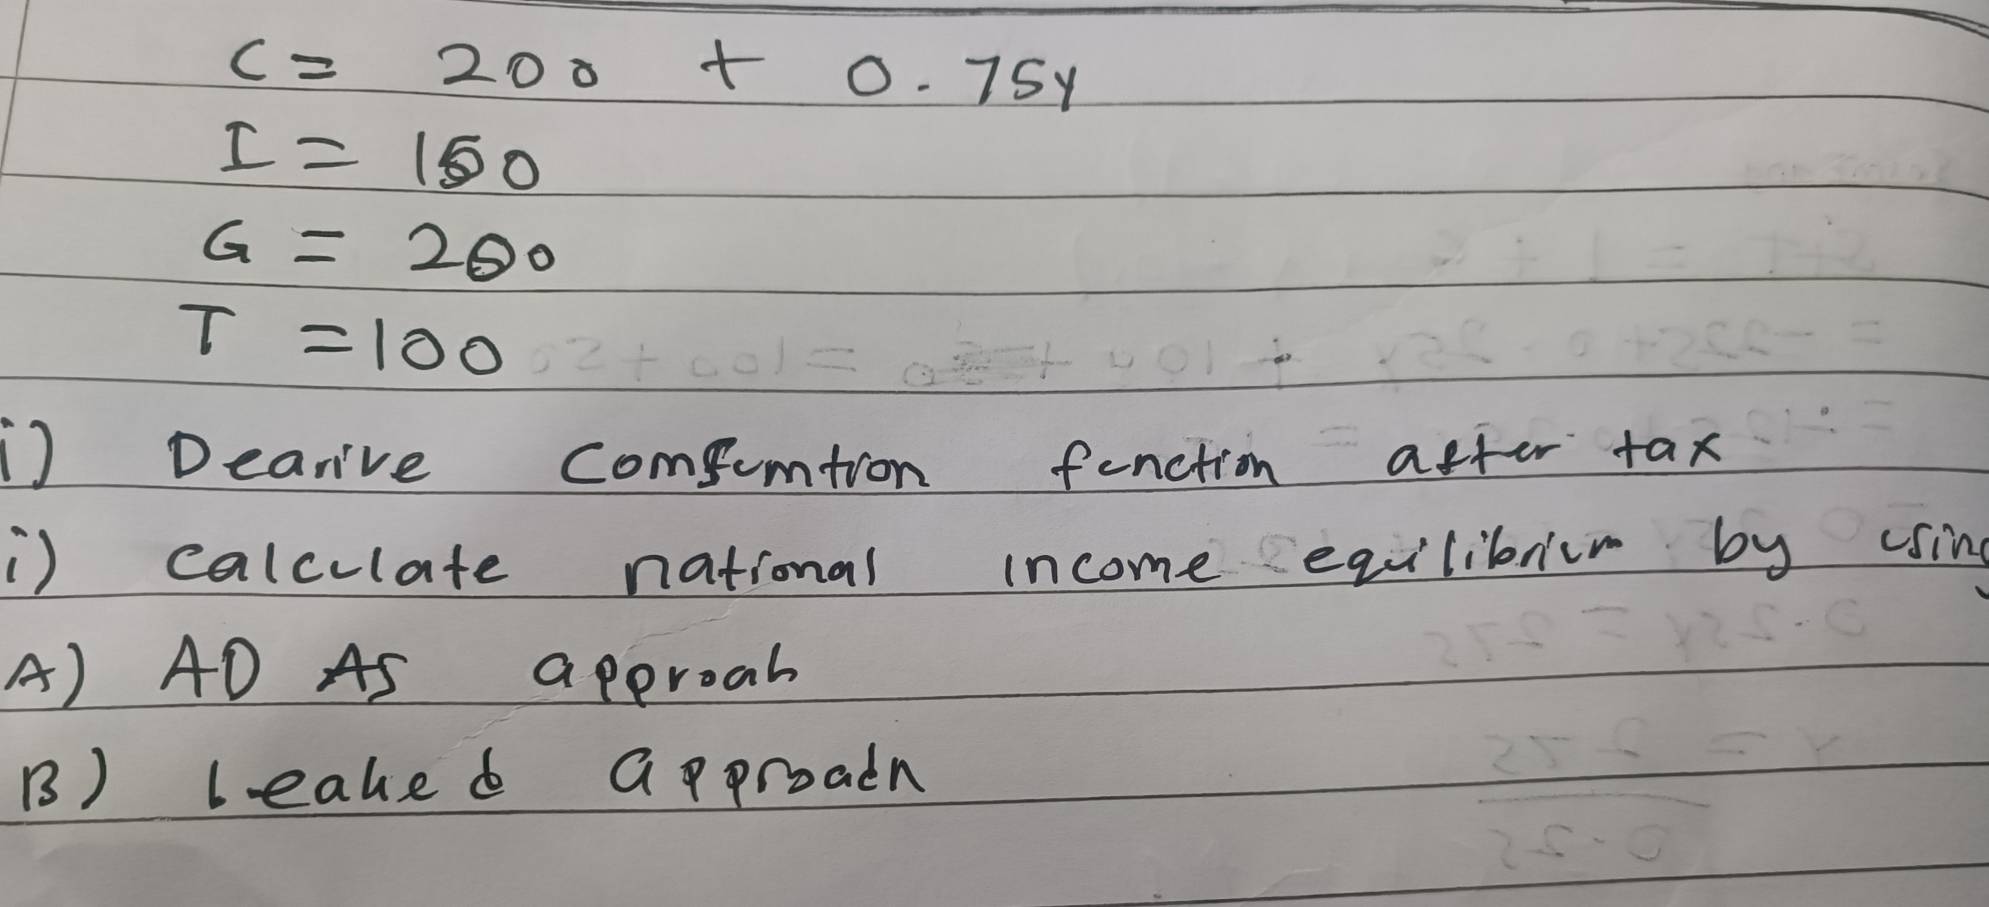 C = 200 + 0.75y
I = 150
G = 200
T = 100
i) Dearive Comsumtion function after tax
i) Calculate national income equilibrium by using
A) AD AS approah
B) Leaked approach